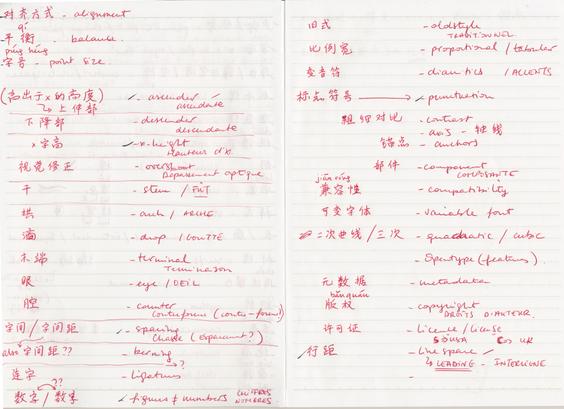 对齐方式 - alignment
qí
平衡 - balance.
píng héng
字号 - point size.
(高出于x的高度) - ascender
↳ 上伸部 ascendante
下降部 - descender
descendante
x字高 - x-height
Hauteurs d'x.
视觉修正 - overshoot
Dépassement optique
干 - stem / FÛT
拱 - arch / ARCHE
滴 - drop / GOUTTE
末端 - terminal
Terminaison
眼 - eye / OEIL
腔 - counter
Contreforme (contre-forme)
字间 / 字间距 - spacing
Chasse (Espacement?)
also 字间距?? - kerning
→ ?
连字 - ligatures
??
数字 / 数字 - figures ≠ numbers CHIFFRES
NOMBRES
旧式 - oldstyle
TRADITIONNEL
比例宽 - proportional / tabular
变音符 - diacritics / ACCENTS
标点符号 → punctuation
粗细对比 - contrast
- axis - 轴线
锚点 - anchors
部件 - component
COMPOSANTE
jiān róng
兼容性 - compatibility
可变字体 - variable font
二次曲线 / 三次 - quadratic / cubic
- Opentype (features).
元数据 - metadata
bǎnquán
版权 - copyright
DROITS D'AUTEUR.
许可证 - Licence / License
USA UK
行距 - Line space /
↳ LEADING - INTERLIGNE
-